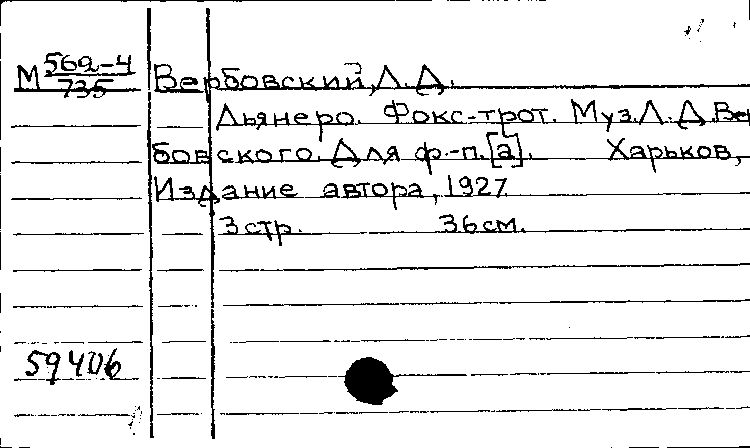 М 562-4/735 Вербовский, Л. Д.
Льянеро. Фокс-трот. Муз. Л. Д. Вер
бовского. Для ф.-п.[а]. Харьков,
Издание автора, 1927
3 стр. 36 см.
59406